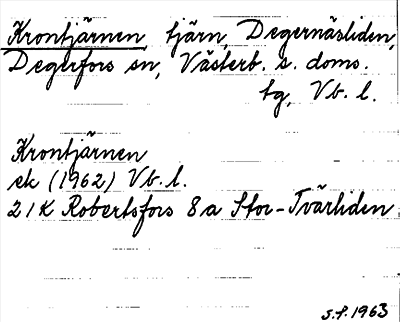 Krontjärnen, tjärn, Degernäsliden,
Degerfors sn, Västerb. s. doms.
tg, Vb. l.
Krontjärnen
ek (1962) Vb. l.
21K Robertsfors 8a Stor-Tvärliden
s.f. 1963